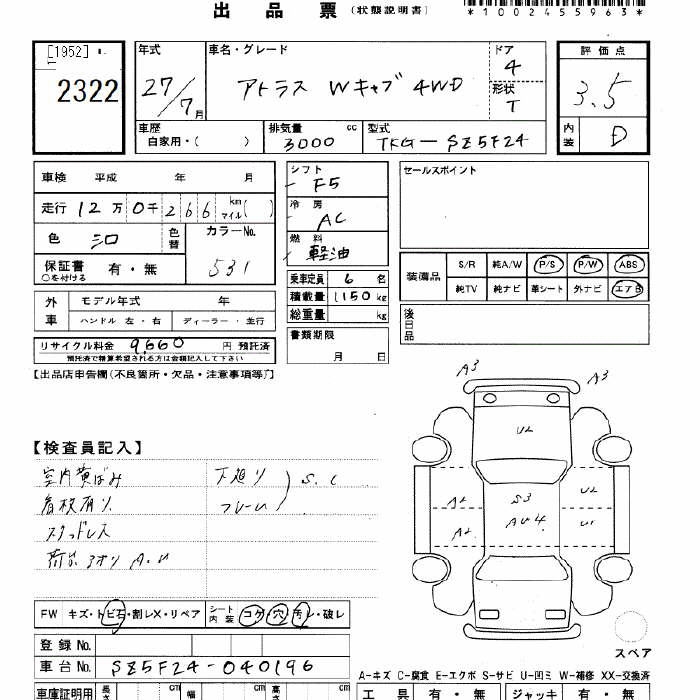 出品票(状態説明書)
*1002455963*
[1952]
2322
年式
27/7月
車名・グレード
アトラス Wキャブ 4WD
ドア
4
形状
T
評価点
3.5
内装
D
車歴
自家用・( )
排気量 cc
3000
型式
TKG-SZ5F24
車検 平成 年 月
走行 12万0千266 km マイル( )
色
シロ
色替
カラーNo.
531
保証書 有・無
○を付ける
シフト
F5
冷房
AC
燃料
軽油
乗車定員 6 名
積載量 1150 kg
総重量 kg
セールスポイント
装備品
S/R 純A/W P/S P/W ABS
純TV 純ナビ 革シート 外ナビ エアB
外車
モデル年式 年
ハンドル 左・右 ディーラー・並行
書類期限
月 日
後日品
リサイクル料金 9,660 円 預託済
預託済で精算希望される方は金額記入して下さい
【出品店申告欄(不良箇所・欠品・注意事項等)】
A3
A3
U2
A2 S3 U2
A2 AU4 U1
【検査員記入】
室内黄ばみ
看板有り
スタッドレス
荷台アオリ A.U
下廻り
フレーム
S.C
FW キズ・トビ石・割レX・リペア
シート内装 コゲ・穴・汚レ・破レ
登録No.
車台No. SZ5F24-040196
スペア
A-キズ C-腐食 E-エクボ S-サビ U-凹ミ W-補修 XX-交換済
車庫証明用 長さ cm 幅 cm cm
工具 有・無 ジャッキ 有・無